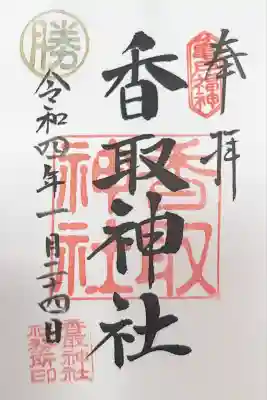 奉拝
亀戸福神
香取神社
香取
神社
勝
令和四年一月二十四日
香取神社
社務所印